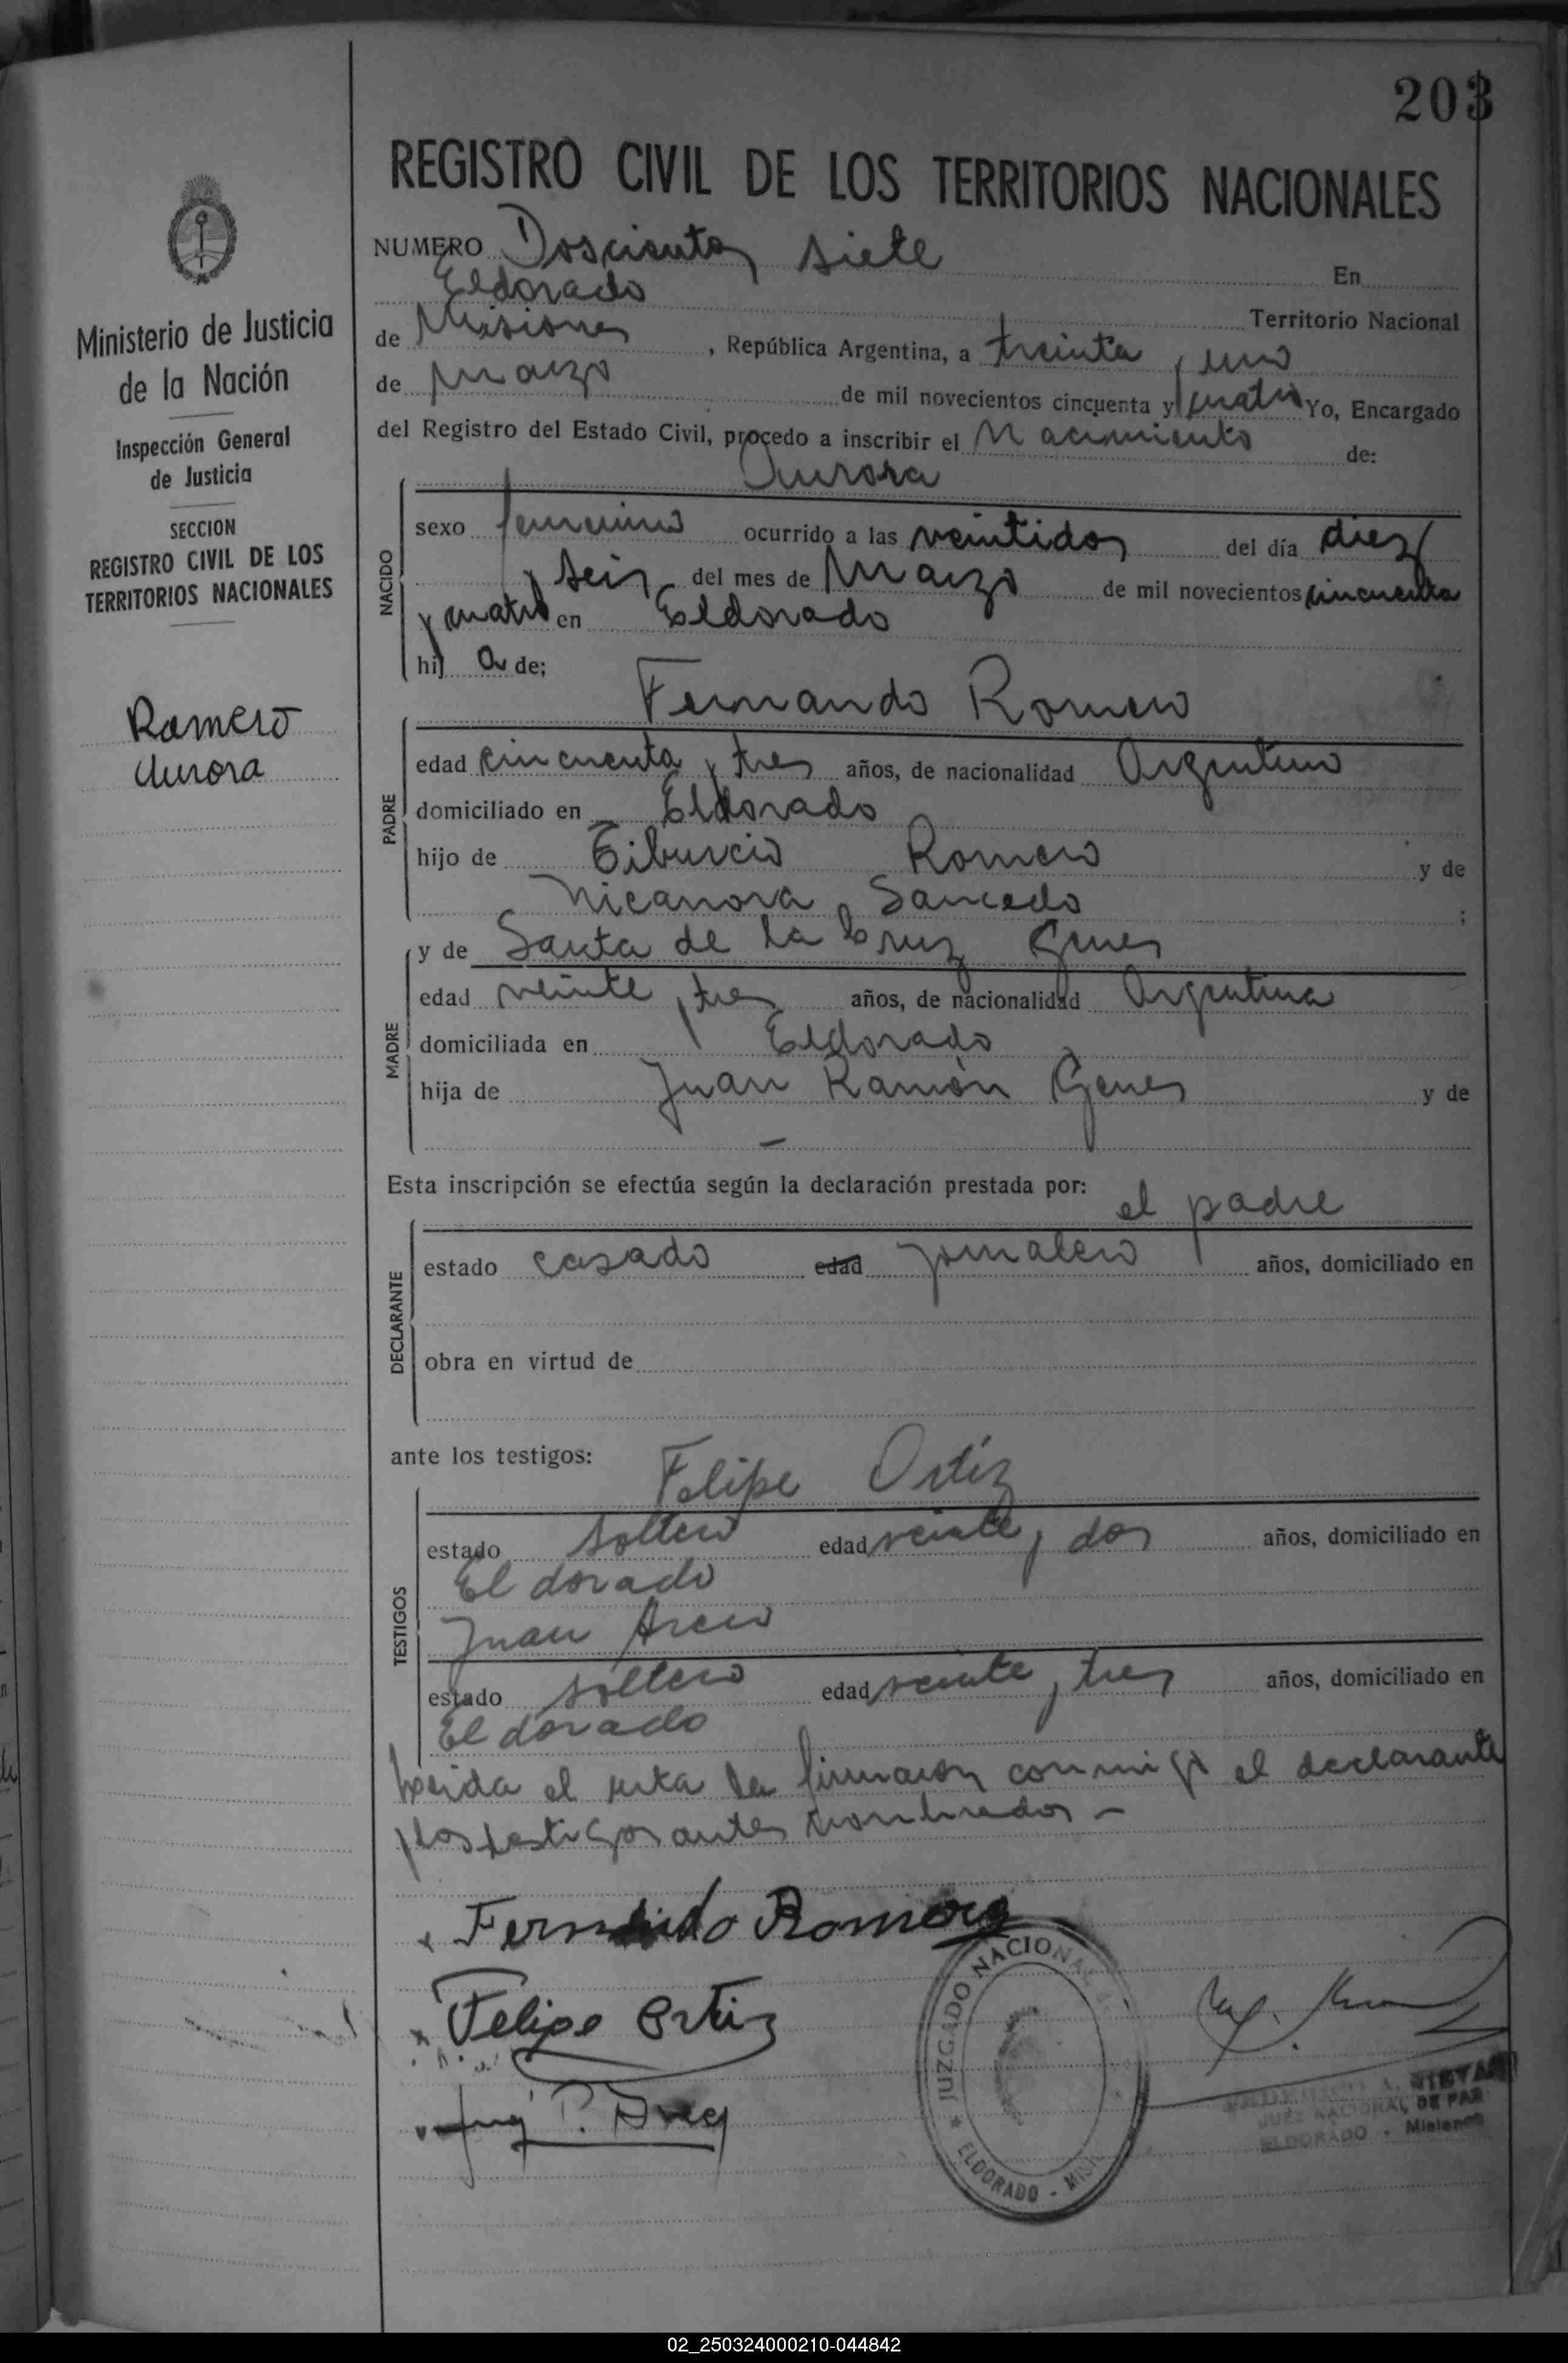 203
REGISTRO CIVIL DE LOS TERRITORIOS NACIONALES
Ministerio de Justicia
de la Nación
Inspección General
de Justicia
SECCION
REGISTRO CIVIL DE LOS
TERRITORIOS NACIONALES
Romero
Aurora
NUMERO Doscientos siete En
Eldorado Territorio Nacional
de Misiones, República Argentina, a treinta y uno
de marzo de mil novecientos cincuenta y cuatro Yo, Encargado
del Registro del Estado Civil, procedo a inscribir el Nacimiento de:
Aurora
NACIDO
sexo femenino ocurrido a las veintidos del día diez
y seis del mes de Marzo de mil novecientos cincuenta
y cuatro en Eldorado
hij a de;
Fernando Romero
PADRE
edad cincuenta y tres años, de nacionalidad Argentino
domiciliado en Eldorado
hijo de Tiburcio Romero y de
Nicanora Saucedo ;
y de Santa de la Cruz Genes
MADRE
edad veinte y tres años, de nacionalidad Argentina
domiciliada en Eldorado
hija de Juan Ramón Genes y de
—
Esta inscripción se efectúa según la declaración prestada por: el padre
DECLARANTE
estado casado edad jornalero años, domiciliado en
obra en virtud de
ante los testigos: Felipe Ortíz
TESTIGOS
estado soltero edad veinte y dos años, domiciliado en
El dorado
Juan
estado soltero edad veinte y tres años, domiciliado en
El dorado
Leida el acta la firmaron conmigo el declarante
y los testigos antes nombrados –
Fernando Romero
Felipe Ortiz
JUZGADO NACIONAL
ELDORADO - MIS
JUEZ NACIONAL DE PAZ
ELDORADO - Misiones
02_250324000210-044842